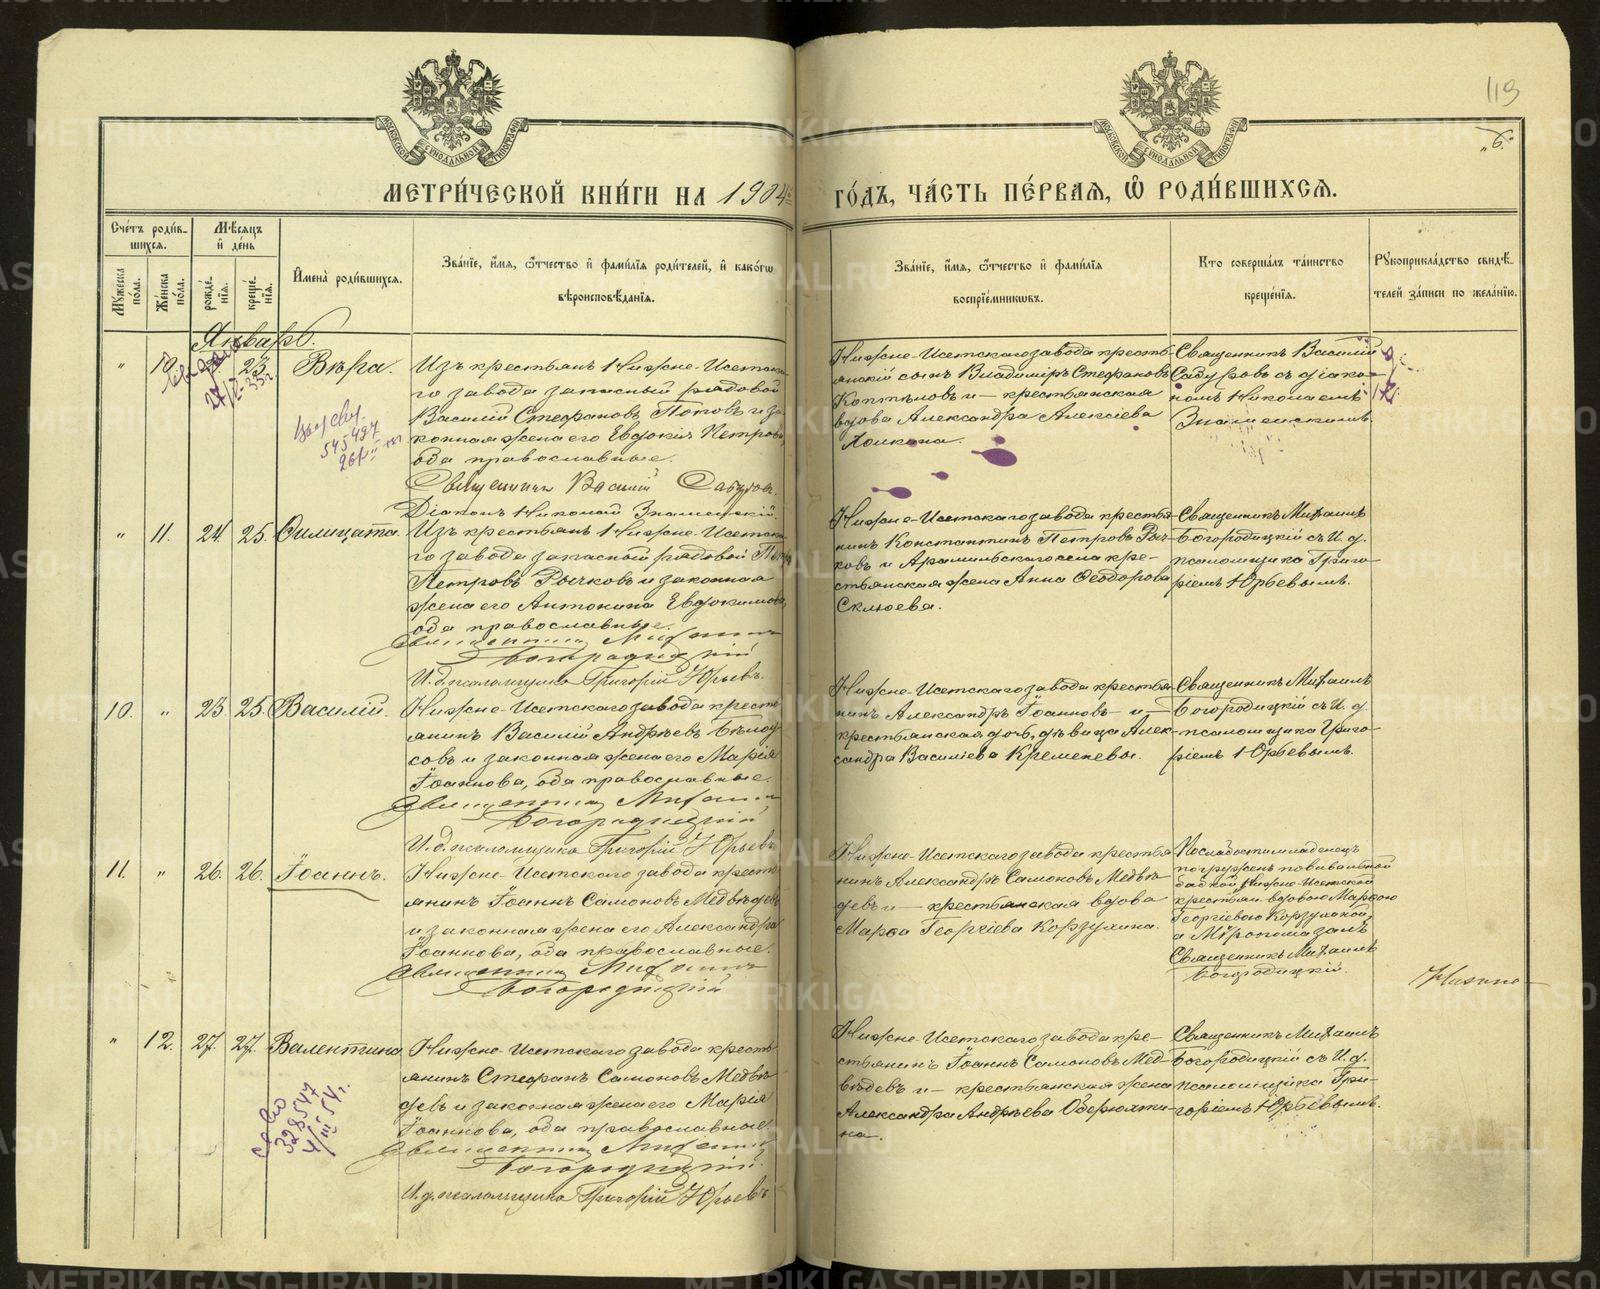 119
„6."
МЕТРИ́ЧЕСКОЙ КНИ́ГИ НА 1904й
ГО́ДЪ, ЧА́СТЬ ПЕ́РВАЯ, Ѽ РОДИ́ВШИХСѦ.
Сче́тъ роди́в-
шихся.
Мѣ́сяцъ
и҆ де́нь
Му́жеска по́ла.
Же́нска по́ла.
рожде́-нїя.
креще́-нїя.
И҆мена̀ роди́вшихся.
Зва́нїе, и҆́мя, ѻ҆́тчество и҆ фами́лїя роди́телей, и҆ како́гѡ
вѣроисповѣ́данїя.
Зва́нїе, и҆́мя, ѻ҆́тчество и҆ фами́лїя
воспрїе́мникѡвъ.
Кто̀ соверша́лъ та́инство
креще́нїя.
Рꙋкоприкла́дство свидѣ́-
телей за́писи по жела́нїю.
Январь.
„ 10 23 Вѣра.
Изъ крестьянъ Нижне-Исетска-
го завода запасный рядовой
Василій Стефановъ Поповъ и за-
конная жена его Евдокія Петрова,
оба православные.
Священникъ Василій Сатуровъ.
Діаконъ Николай Знаменскій.
Нижне-Исетскаго завода кресть-
янскій сынъ Владиміръ Стефановъ
Коптяловъ и — крестьянская
вдова Александра Алексіева
Священникъ Василій
с діако-
номъ Николаемъ
Знаменскимъ.
545497
„ 11. 24. 25. Филицата.
Изъ крестьянъ Нижне-Исетска-
го завода запасный рядовой
Петровъ Рычковъ и законная
жена его Антонина Евдокимова,
оба православные.
Священникъ Михаилъ
Богородицкій
И. д. псаломщика Григорій Юрьевъ.
Нижне-Исетскаго завода крестья-
нинъ Константинъ Петровъ Рыч-
ковъ и Арамильскаго села кре-
стьянская жена Анна Ѳеодорова
Склюева.
Священникъ Михаилъ
Богородицкій съ И. д.
псаломщика Григо-
ріемъ Юрьевымъ.
10. „ 23. 25. Василій.
Нижне-Исетскаго завода кресть-
янинъ Василій Андреевъ Бѣлоу-
совъ и законная жена его Марія
Іоаннова, оба православные.
Священникъ Михаилъ
Богородицкій
И. д. псаломщика Григорій Юрьевъ
Нижне-Исетскаго завода крестья-
нинъ Александръ Іоанновъ — и —
крестьянская дочь, дѣвица Алек-
сандра Василіева Кременевы.
Священникъ Михаилъ
Богородицкій съ И. д.
псаломщика Григо-
ріемъ Юрьевымъ.
11. „ 26. 26. Іоаннъ.
Нижне-Исетскаго завода кресть-
янинъ Іоаннъ Самоновъ Медвѣдевъ
и законная жена его Александра
Іоаннова, оба православные.
Священникъ Михаилъ
Богородицкій
Нижне-Исетскаго завода крестья-
нинъ Александръ Самоновъ Медвѣ-
девъ и — крестьянская вдова
Марѳа Георгіева Корзухина.
По слабости младенецъ
погруженъ повивальной
бабкой Нижне-Исетской
крестьян. вдовою Марѳою
Георгіевою Корзухиной,
а Мѵропомазанъ
Священникъ Михаилъ
Богородицкій.
„ 12. 27. 27. Валентина.
Нижне-Исетскаго завода кресть-
янинъ Стефанъ Самоновъ Медвѣ-
девъ и законная жена его Марія
Іоаннова, оба православные.
Священникъ Михаилъ
Богородицкій.
И. д. псаломщика Григорій Юрьевъ
Нижне-Исетскаго завода кре-
стьянинъ Іоаннъ Самоновъ Мед-
вѣдевъ и — крестьянская жена
Александра Андреева
Священникъ Михаилъ
Богородицкій съ И. д.
псаломщика Гри-
горіемъ Юрьевымъ.
328547
4/III 54 г.
METRIKI.GASO-URAL.RU